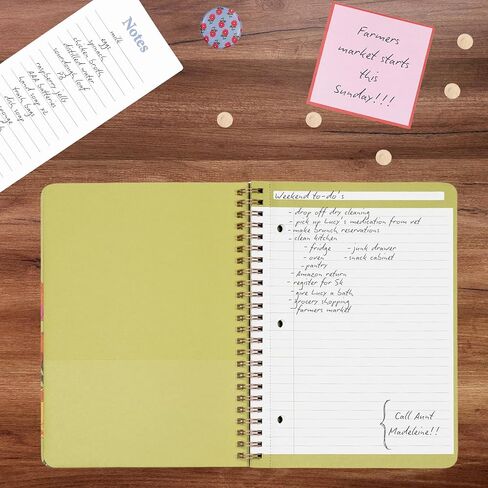 Notes
milk
eggs
spinach
chicken broth
distilled water
sourdough loaf
PB
raspberry jelly
AAA batteries
hand soap
trash bags
dish soap
Farmers
market starts
this
Sunday!!!
Weekend to-do's
- drop off dry cleaning
- pick up Lucy's medication from vet
- make brunch reservations
- clean kitchen
- fridge - junk drawer
- oven - snack cabinet
- pantry
- Amazon return
- register for 5k
- give Lucy a bath
- grocery shopping
- farmers market
Call Aunt
Madeleine!!